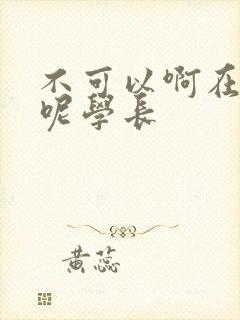 不可以啊在
呢學長
黄蕊